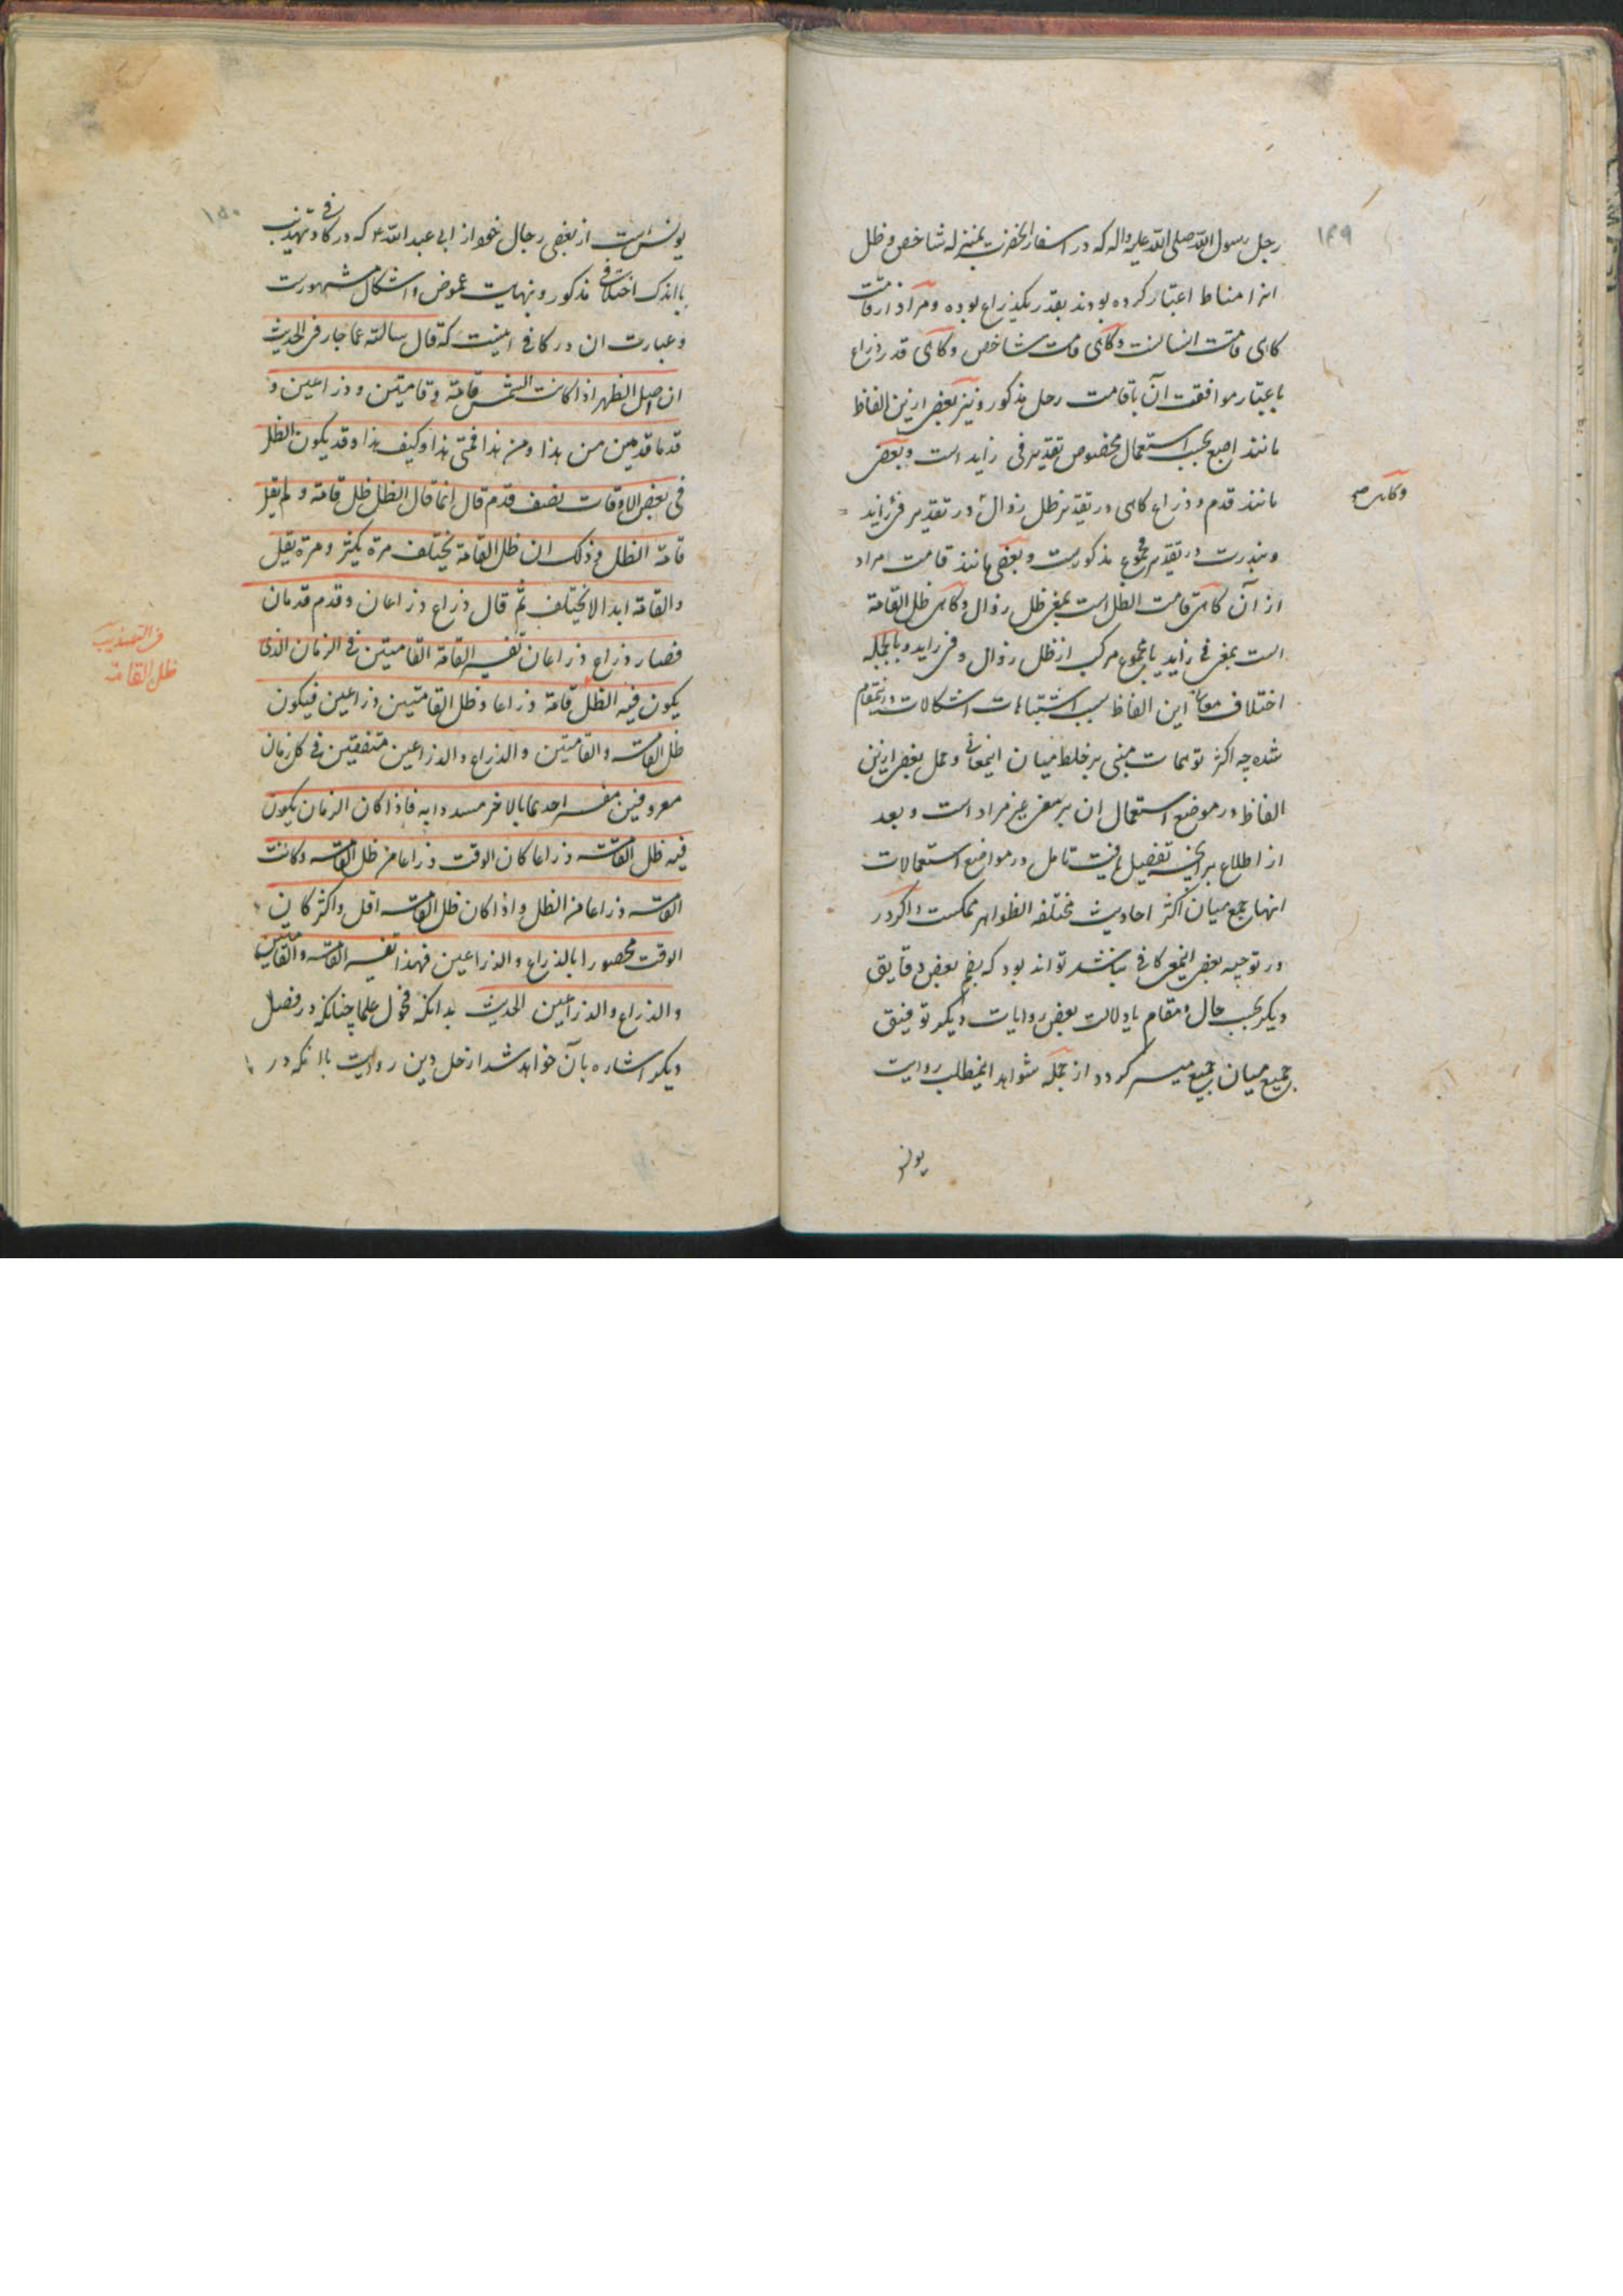 ۱۴۹
رحل رسول الله صلی الله علیه واله که در اسفار آنحضرت بمنزله شاخص و ظل
انرا مناط اعتبار کرده بودند بقدر یکذراع بوده و مراد از قامت
کاهی قامت انسانست و کاهی قامت شاخص و کاهی قدر ذراع
باعتبار موافقت آن باقامت رحل مذکور و نیز بعضی ازین الفاظ
مانند اصبع بحسب استعمال مخصوص تقدیر فی زاید است و بعضی
مانند قدم و ذراع کاهی در تقدیر ظل زوال و در تقدیر فی زاید
وکاهی صح
و بندرت در تقدیر مجموع مذکورست و بعضی مانند قامت مراد
از آن کاهی قامت الظل است بمعنی ظل زوال و کاهی ظل القامة
است بمعنی فی زاید یا مجموع مرکب از ظل زوال و فی زاید و بالجمله
اختلاف معانی این الفاظ سبب اشتباهات و اشکالات درینمقام
شده چه اکثر توهمات مبنی بر خلط میان اینمعانی و حمل بعضی ازین
الفاظ در موضع استعمال ان بر معنی غیر مراد است و بعد
از اطلاع براین تفصیل یافت تامل در مواضع استعمالات
انها جمع میان اکثر احادیث مختلفه الظواهر ممکنست و اکر در
در توجیه بعضی اینمعنی کافی نباشد تواند بود که بضم بعضی دقایق
دیکر بحسب حال و مقام یا دلالت بعضی روایات دیکر توفیق
جمیع میان جمیع میسر کردد و از جمله شواهد اینمطلب روایت
یونس
۱۵۰
یونس است از بعضی رجال خود از ابی عبد الله ع که در کافی و تهذیب
بااندک اختلافی مذکور و بنهایت غموض و اشکال مشهورست
و عبارت ان در کافی اینست که قال سالته عما جاء فی الحدیث
ان اصل الظهر اذا کانت الشمس قامة و قامتین و ذراعین و
قدما قدمین من هذا و من هذا فمتی هذا و کیف هذا و قد یکون الظل
فی بعض الاوقات نصف قدم قال انما قال الظل ظل قامة و لم یقل
قامة الظل و ذلک ان ظل القامة یختلف مرة یکثر و مرة یقل
والقامة ابدا لا یختلف ثم قال ذراع و ذراعان و قدم و قدمان
فصار ذراع و ذراعان تفسیر القامة القامتین فی الزمان الذی
فی التهذیب
ظل القامة
یکون فیه الظل قامة ذراعا و ظل القامتین ذراعین فیکون
ظل القامة والقامتین والذراع والذراعین متفقین فی کل زمان
معروفین مفسر احدهما بالاخر مسددا به فاذا کان الزمان یکون
فیه ظل القامة ذراعا کان الوقت ذراعا من ظل القامة و کانت
القامة ذراعا من الظل و اذا کان ظل القامة اقل و اکثر کان
الوقت محصورا بالذراع والذراعین فهذا تفسیر القامة والقامتین
والذراع والذراعین الحدیث بدانکه فحول علما چنانکه در فصل
دیکر اشاره بآن خواهد شد از حل این روایت باانکه در